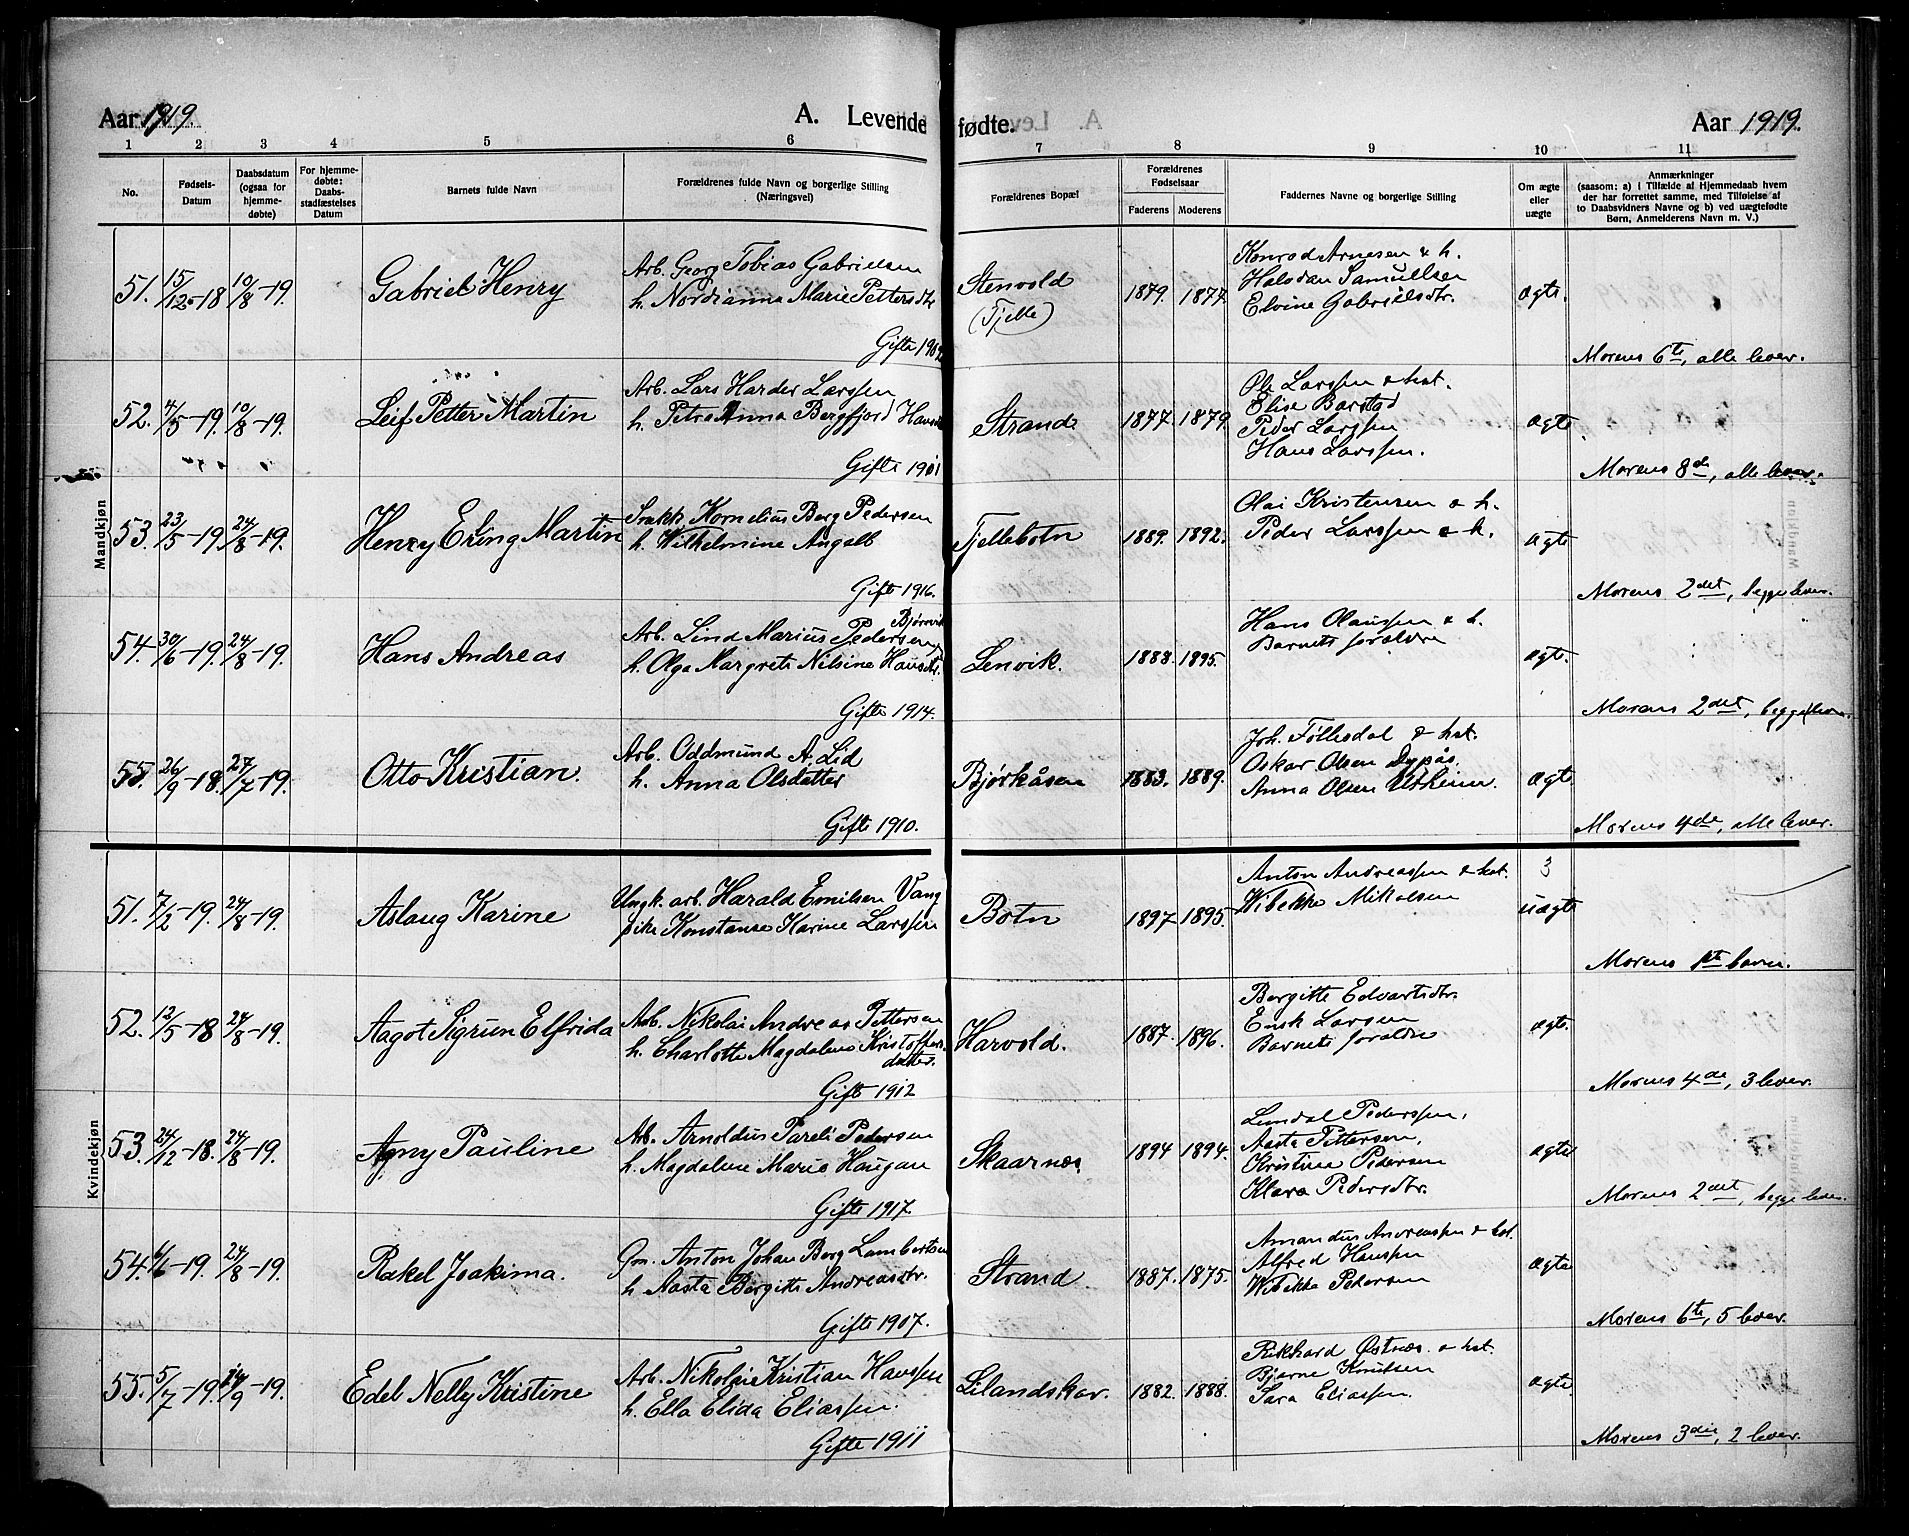 Aar 1919.
A. Levende fødte.
Aar 1919.
1 2 3 4 5 6 7 8 9 10 11
No.
Fødsels-Datum
Daabsdatum (ogsaa for hjemme-døbte)
For hjemme-døbte: Daabs-stadfæstelses Datum
Barnets fulde Navn
Forældrenes fulde Navn og borgerlige Stilling (Næringsvei)
Forældrenes Bopæl
Forældrenes Fødselsaar
Faderens Moderens
Faddernes Navne og borgerlige Stilling
Om ægte eller uægte
Anmærkninger
(saasom: a) i Tilfælde af Hjemmedaab hvem
der har forrettet samme, med Tilføielse af
to Daabsvidners Navne og b) ved uægtefødte
Børn, Anmelderens Navn m. V.)
Mandkjøn
51. 15/12-18 10/8-19. Gabriel Henry
Arb. Georg Tobias Gabrielsen
h. Nordianna Marie Pettersdtr
Gifte 1902
Stenvold
(Fjelle)
1879. 1877.
Konrad Arnesen & h.
Halvdan Samuelsen
Elvine Gabrielsdtr.
ægte.
Morens 6te, alle lever.
52. 4/5-19. 10/8-19. Leif Petter Martin
Arb. Lars Harder Larssen
h. Petra Anna Bergfjord
Gifte 1901
Strand
1877. 1879.
Ole Larssen & hst.
Elise Barstad
Peder Larssen
Hans Larssen.
ægte
Morens 8de, alle lever.
53. 23/5-19. 24/8-19. Henry Erling Martin
Kornelius Berg Pedersen
h. Wilhelmine Angell
Gifte 1916.
Fjellebotn
1889. 1892.
Olai Kristensen & h.
Peder Larssen & h.
ægte
Morens 2det, begge lever.
54. 30/6-19. 24/8-19. Hans Andreas
Bjørnvik
Arb. Lind Marius Pedersen
h. Olga Margrete Nilsine Hansdtr.
Gifte 1914.
Lenvik.
1888. 1895.
Hans Olaussen & h.
Barnets forældre
ægte.
Morens 2det, begge lever.
55. 26/9-18. 27/7-19. Otto Kristian.
Arb. Oddmund A. Lid
h. Anna Olsdatter
Gifte 1910.
Bjørkåsen
1883. 1889.
Joh. Føllesdal & hst.
Oskar Olsen Dypås.
Anna Olsen Utheim.
ægte.
Morens 4de, alle lever.
Kvindekjøn
51. 7/2-19. 24/8-19. Aslaug Karine
Ungk. arb. Harald Emilsen Vang
pike Konstanse Karine Larssen
Botn
1897. 1895.
Anton Andreassen & hst.
Wibekke Mikalsen
3
uægte
Morens 1ste barn.
52. 12/5-18 24/8-19. Aagot Sigrun Elfrida
Arb. Nikolai Andreas Pettersen
h. Charlotte Magdalene Kristoffersdatter.
Gifte 1912
Harvold.
1887. 1896.
Bergitte Edvartsdtr.
Larsen
Barnets forældre
ægte.
Morens 4de, 3 lever.
53. 24/12-18. 24/8-19. Agny Pauline
Arb. Arnoldus Pareli Pedersen
h. Magdalene Marie Haugan
Gifte 1917.
Skaarnes
1894 1894.
Lundal Pederssen.
Aasta Pettersen.
Kristine Pedersen
Klara Pedersdtr.
ægte
Morens 2det, begge lever.
54. 6/6-19. 24/8-19. Rakel Joakima.
Gm. Anton Johan Berg Lambertsen
h. Aasta Bergitte Andreasdtr.
Gifte 1907.
Strand
1887. 1875.
Amandus Andreassen & hst.
Alfred Hanssen
Wibekke Pedersen
ægte
Morens 6te, 5 lever.
55. 5/7-19. 14/9-19. Edel Nelly Kristine
Arb. Nikolai Kristian Hanssen
h. Ella Elida Eliassen.
Gifte 1911
Lilandskar.
1882. 1888.
Rikhard Østnes & hst.
Bjarne Knutsen
Sara Eliassen.
ægte
Morens 3die, 2 lever.